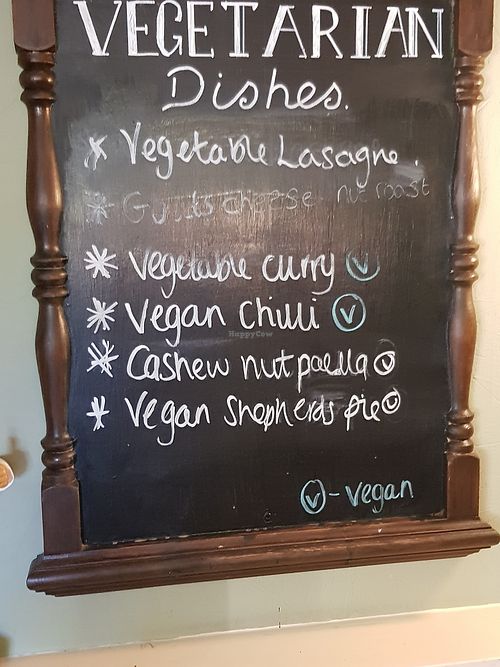 VEGETARIAN
Dishes.
* Vegetable Lasagne.
* cheese nut roast
* Vegetable curry Ⓥ
* Vegan Chilli Ⓥ
* Cashew nut paella Ⓥ
* Vegan Shepherds pie Ⓥ
Ⓥ - vegan
HappyCow